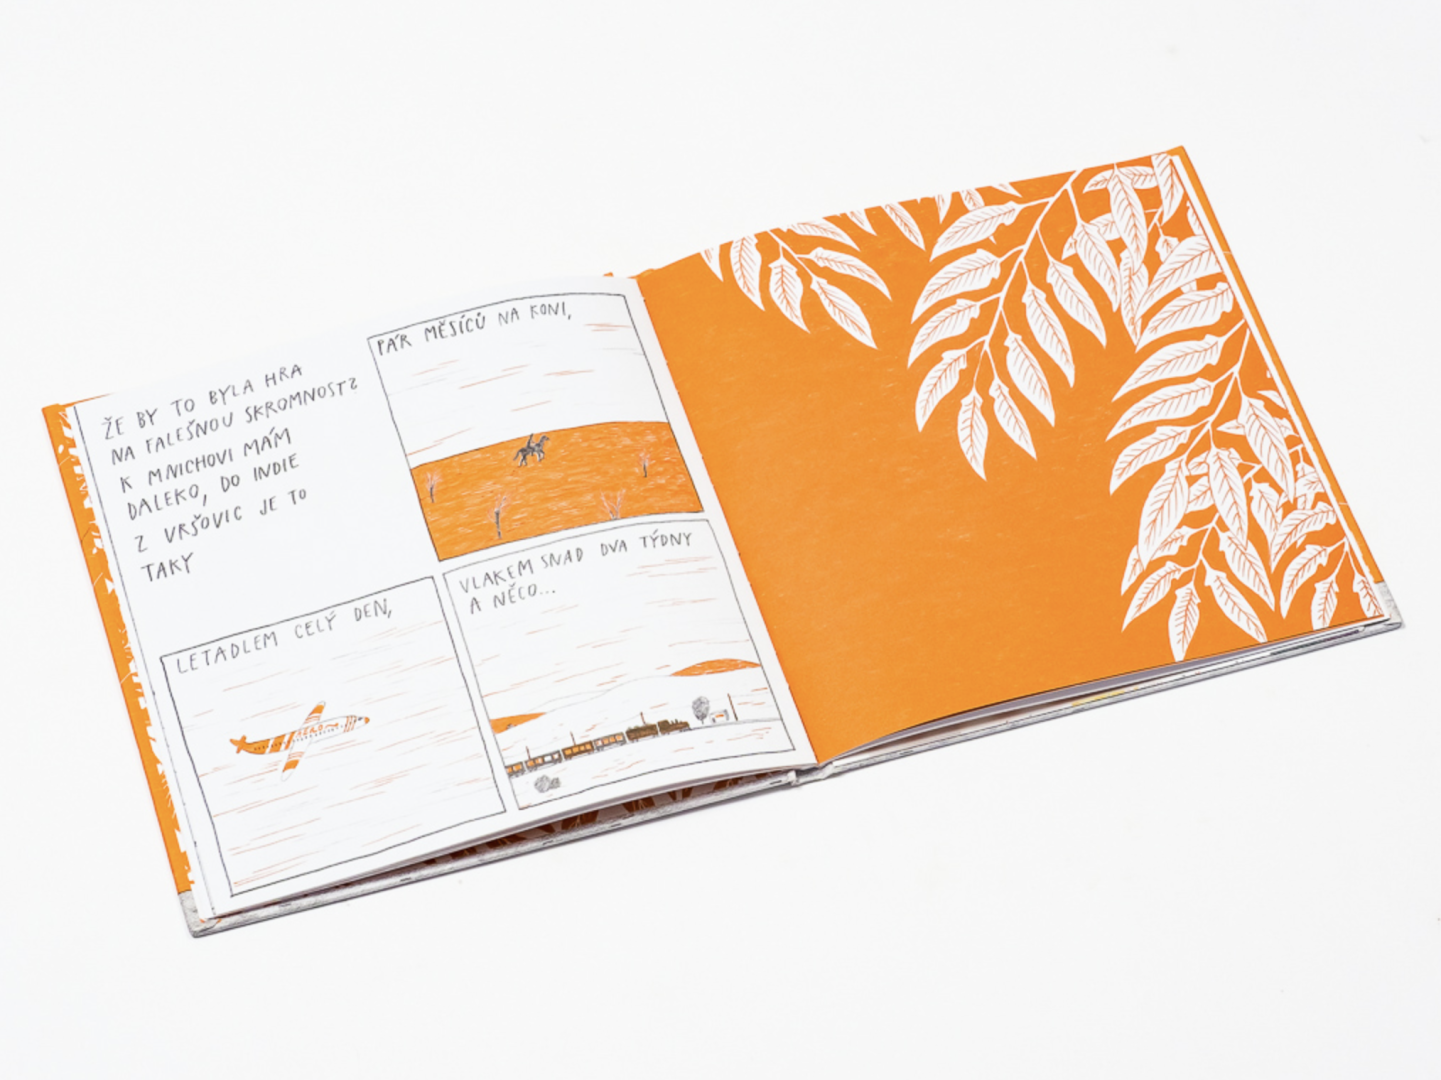 ŽE BY TO BYLA HRA
NA FALEŠNOU SKROMNOST?
K MNICHOVI MÁM
DALEKO, DO INDIE
Z VRŠOVIC JE TO
TAKY
PÁR MĚSÍCŮ NA KONI,
LETADLEM CELÝ DEN,
VLAKEM SNAD DVA TÝDNY
A NĚCO...